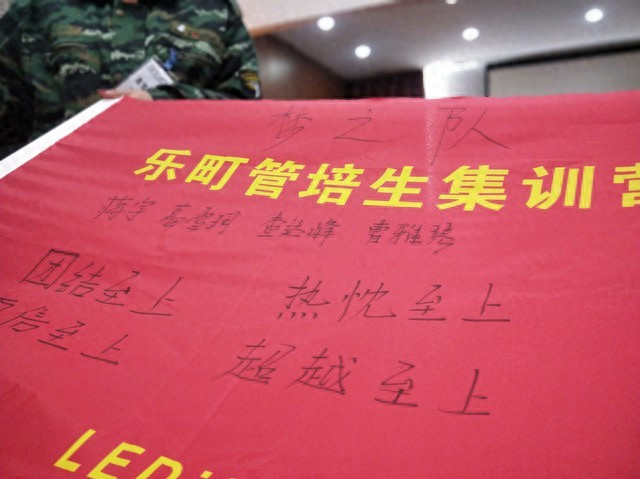 梦之队
乐町管培生集训营
陈宇 查达峰 曹雅琴
团结至上 热忱至上
信至上 超越至上
LEDi